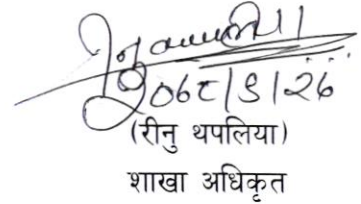 २०६८/९/२६
(रीनु थपलिया)
शाखा अधिकृत